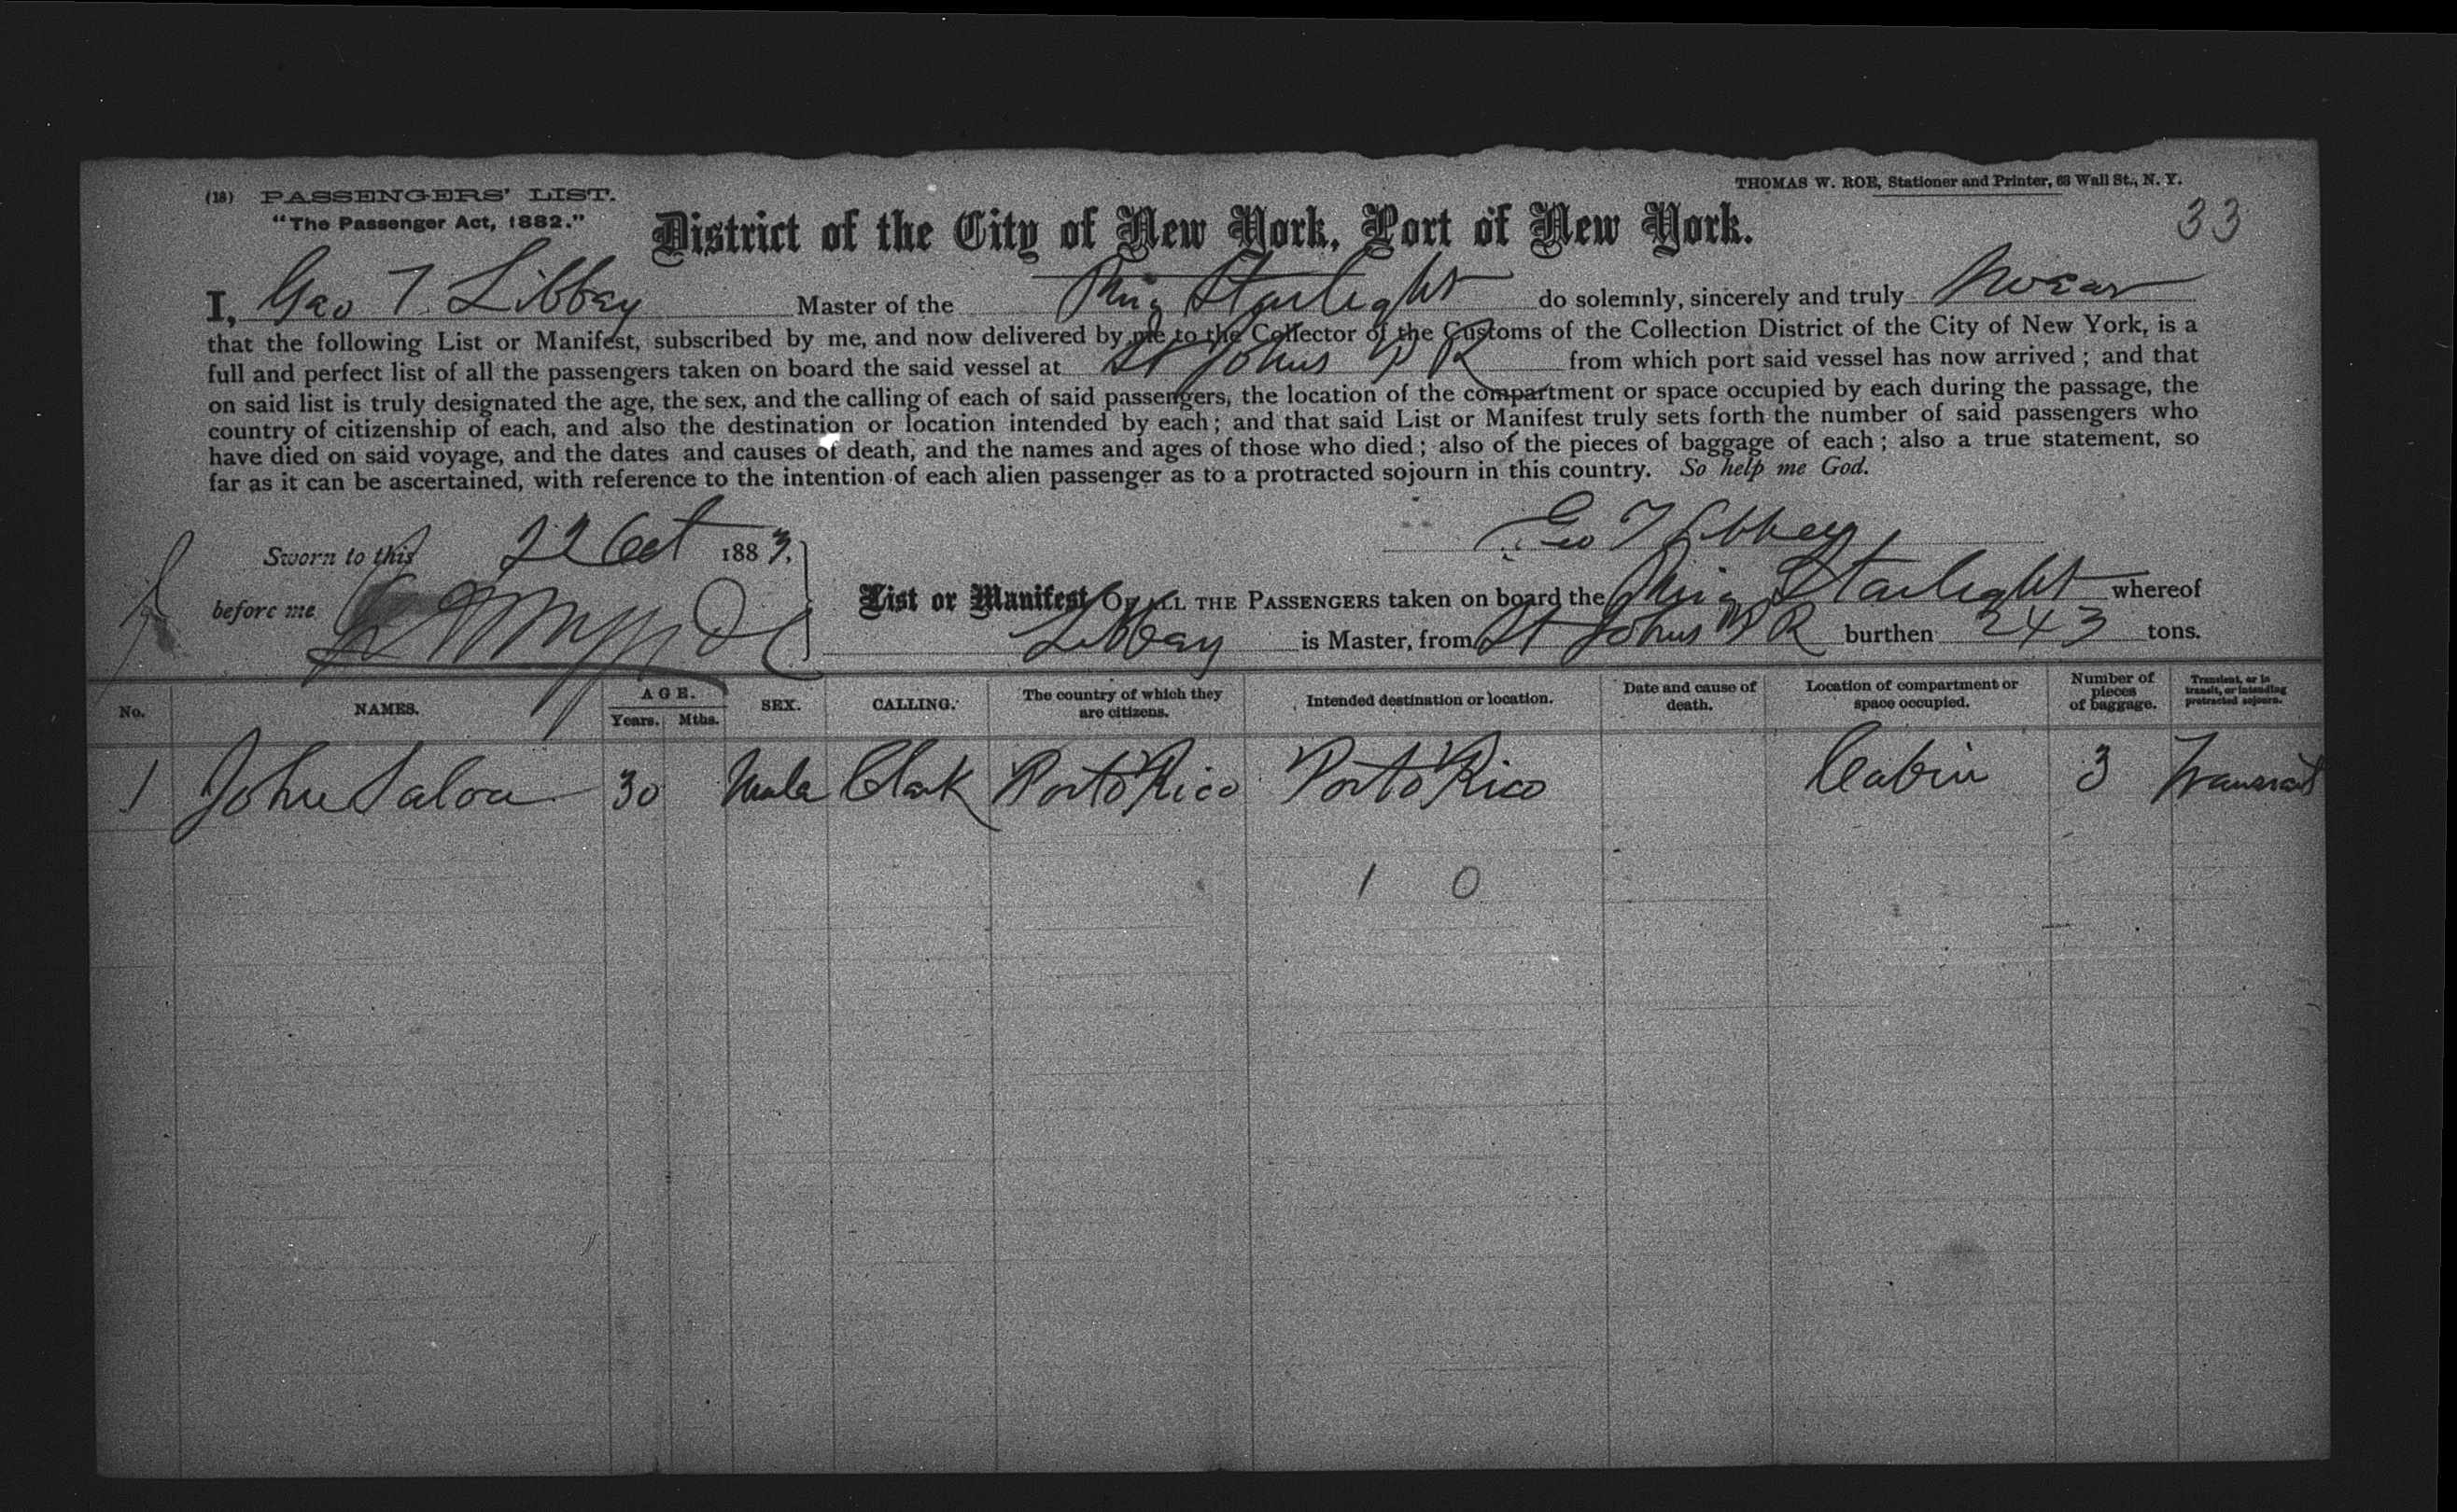 (18) PASSENGERS' LIST.
THOMAS W. ROE, Stationer and Printer, 68 Wall St., N. Y.
"The Passenger Act, 1882."
District of the City of New York, Port of New York.
33
I, Geo T. Libbey Master of the Starlight do solemnly, sincerely and truly swear
that the following List or Manifest, subscribed by me, and now delivered by me to the Collector of the Customs of the Collection District of the City of New York, is a
full and perfect list of all the passengers taken on board the said vessel at St Johns P R from which port said vessel has now arrived; and that
on said list is truly designated the age, the sex, and the calling of each of said passengers, the location of the compartment or space occupied by each during the passage, the
country of citizenship of each, and also the destination or location intended by each; and that said List or Manifest truly sets forth the number of said passengers who
have died on said voyage, and the dates and causes of death, and the names and ages of those who died; also of the pieces of baggage of each; also a true statement, so
far as it can be ascertained, with reference to the intention of each alien passenger as to a protracted sojourn in this country. So help me God.
Geo T Libbey
Sworn to this 22 Oct 1883,
before me
List or Manifest OF ALL THE PASSENGERS taken on board the Starlight whereof
Libbey is Master, from St Johns P R burthen 243 tons.
No. NAMES. AGE. Years. Mths. SEX. CALLING. The country of which they are citizens. Intended destination or location. Date and cause of death. Location of compartment or space occupied. Number of pieces of baggage. Transient, or in transit, or intending protracted sojourn.
1 John 30 Male Clark Porto Rico Porto Rico Cabin 3 Transit
1 0